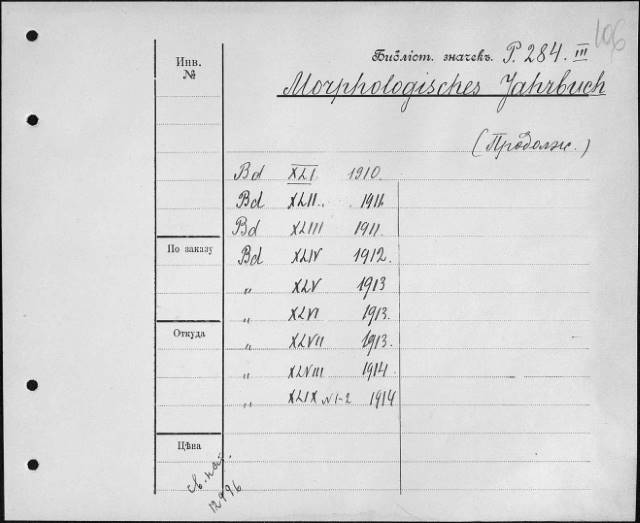 106
Инв.
№
Библіот. значекъ. P. 284. III
Morphologisches Jahrbuch
(Продолж.)
Bd XLI 1910.
Bd XLII. 1911
Bd XLIII 1911.
По заказу
Bd XLIV 1912.
„ XLV 1913
„ XLVI 1913.
Откуда
„ XLVII 1913.
„ XLVIII 1914
„ XLIX N1-2 1914
Цѣна
12996